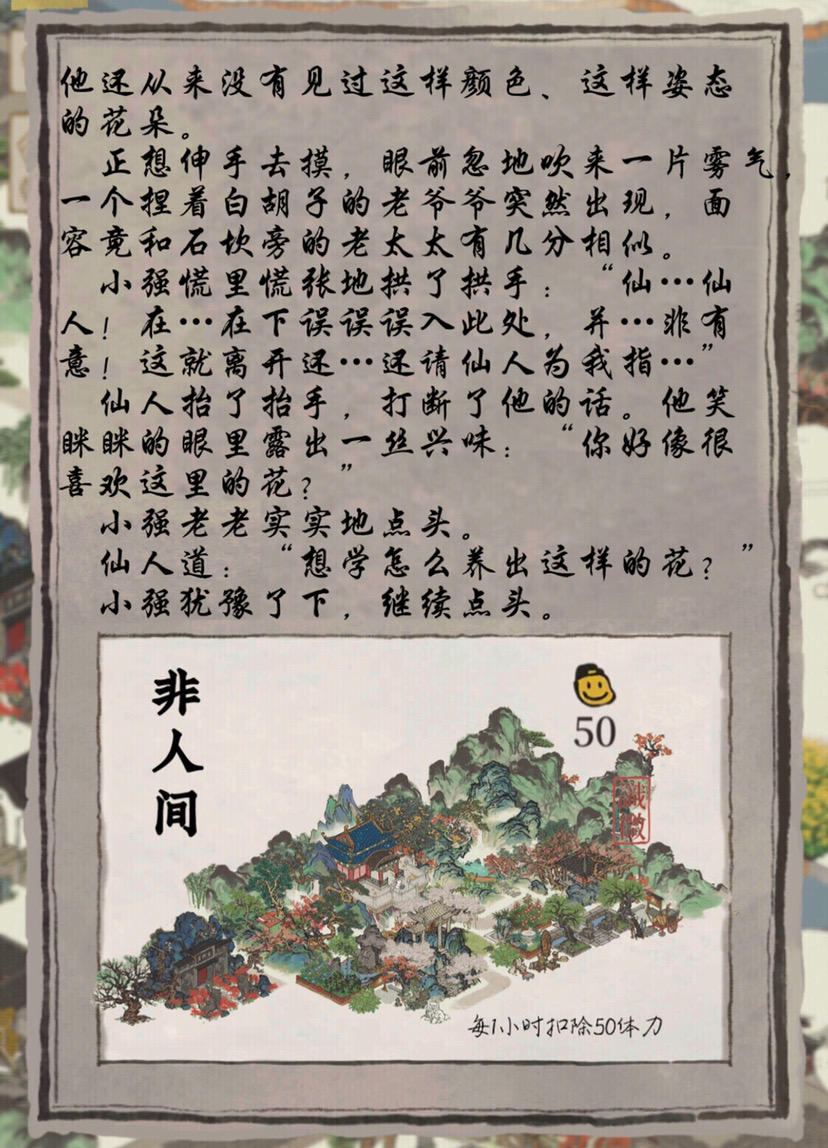 他还从来没有见过这样颜色、这样姿态
的花朵。
正想伸手去摸，眼前忽地吹来一片雾气，
一个捏着白胡子的老爷爷突然出现，面
容竟和石坎旁的老太太有几分相似。
小强慌里慌张地拱了拱手：“仙…仙
人！在…在下误误误入此处，并…非有
意！这就离开还…还请仙人为我指…”
仙人抬了抬手，打断了他的话。他笑
眯眯的眼里露出一丝兴味：“你好像很
喜欢这里的花？”
小强老老实实地点头。
仙人道：“想学怎么养出这样的花？”
小强犹豫了下，继续点头。
非人间
50
每1小时扣除50体力